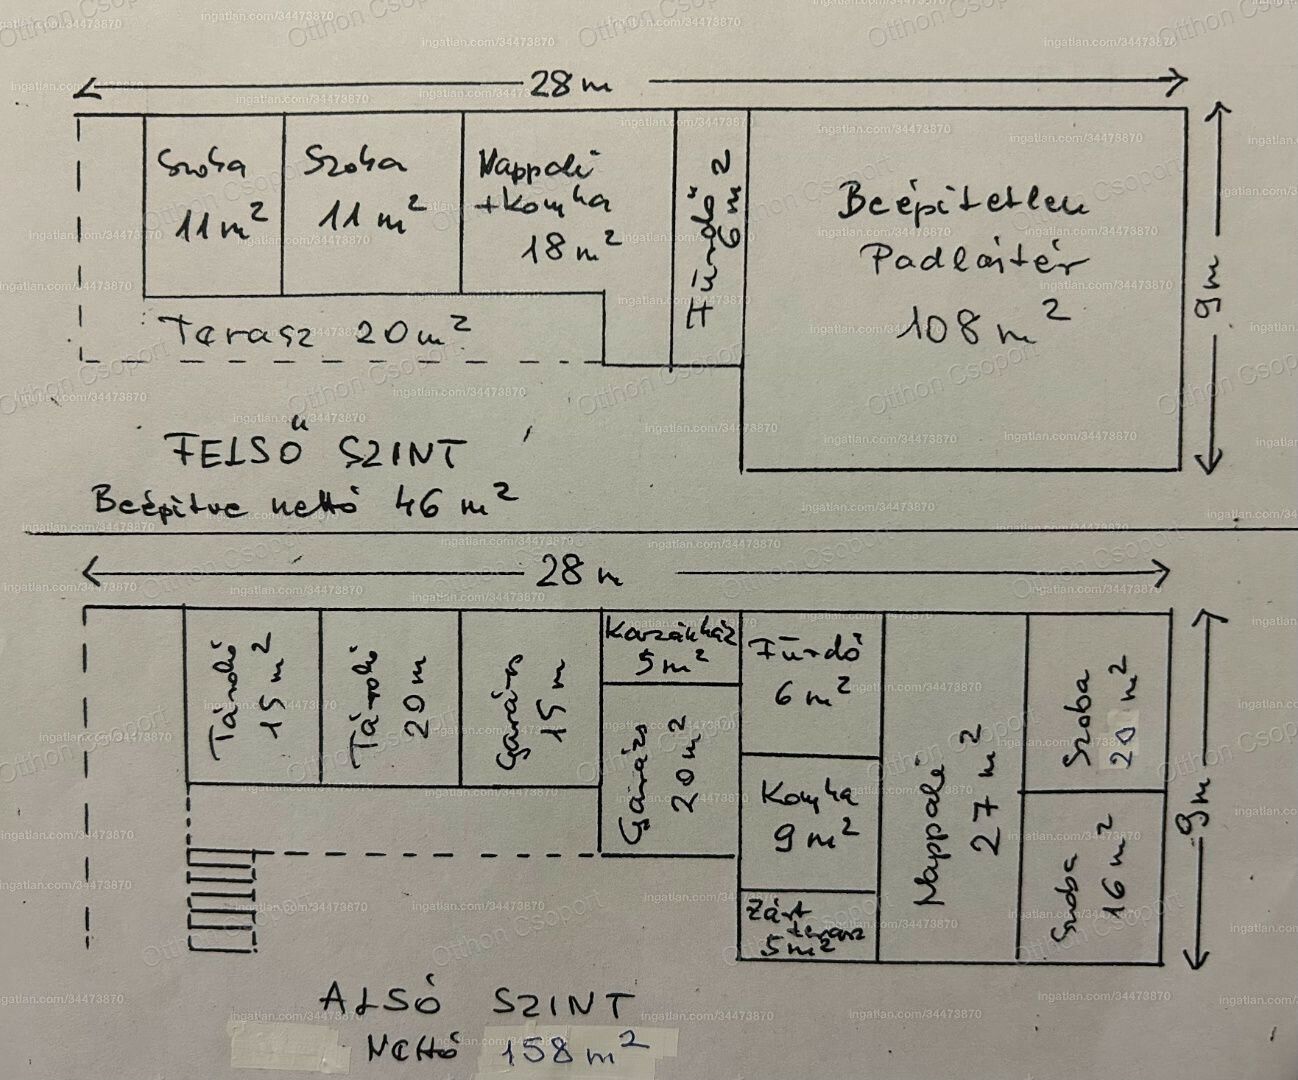 28 m
Szoba
11 m²
Szoba
11 m²
Nappali
+konyha
18 m²
Fürdő
6 m²
Beépítetlen
Padlástér
108 m²
9 m
Terasz 20 m²
FELSŐ SZINT
Beépítve nettó 46 m²
28 m
Tároló
15 m²
Tároló
20 m
Garázs
15 m
Kazánház
5 m²
Garázs
20 m²
Fürdő
6 m²
Konyha
9 m²
Zárt
terasz
5 m²
Nappali
27 m²
Szoba
20 m²
Szoba
16 m²
9 m
ALSÓ SZINT
Nettó 158 m²
ingatlan.com/34473870
Otthon Csoport